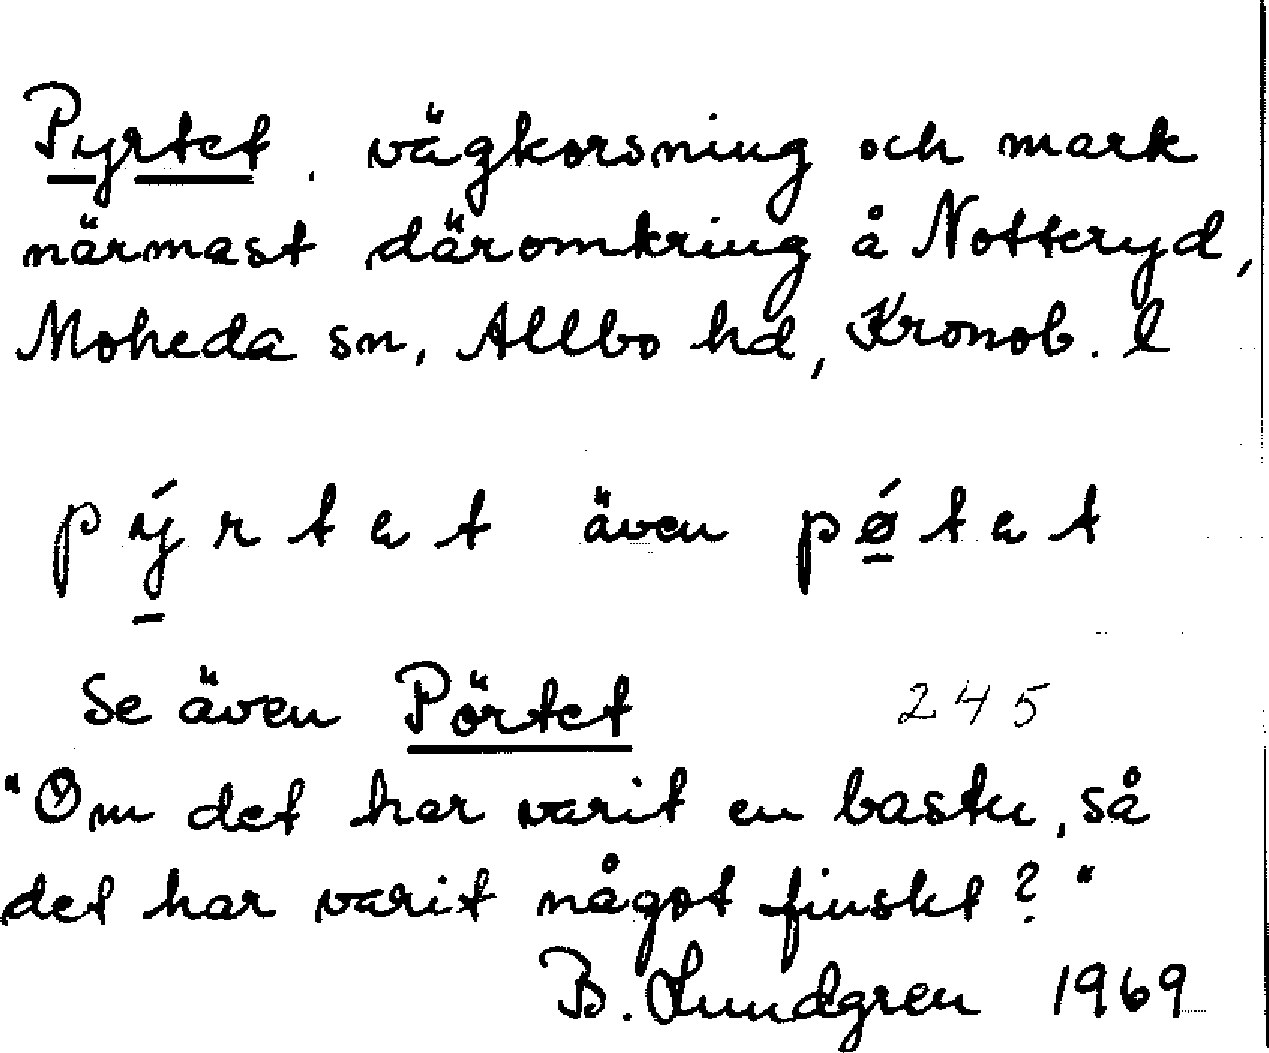 Pyrtet. vägkorsning och mark
närmast däromkring å Notteryd,
Moheda sn, Allbo hd, Kronob. l
pýrtet även pǿtet
Se även Pörtet 245
"Om det har varit en bastu, så
det har varit något finskt?"
B. Lundgren 1969